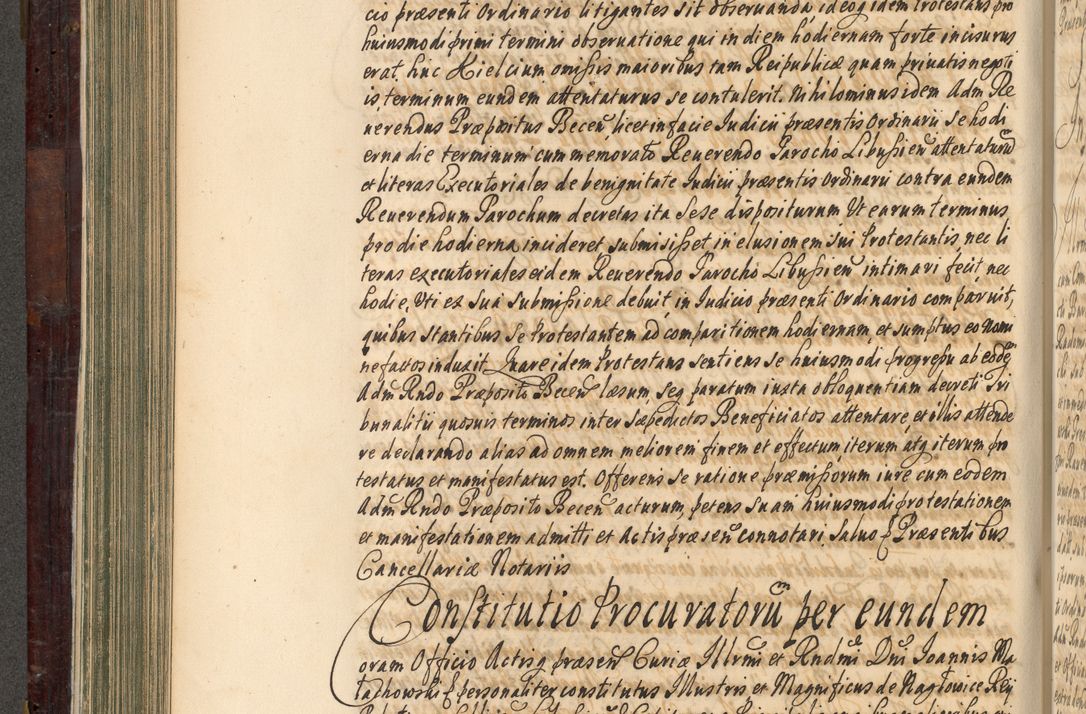 cio præsenti Ordinario litigantes sit observanda ideoq idem Protestans pro
huiusmodi primi termini observatione qui in diem hodiernam forte incisurus
erat, huc Kielcium omissis maioribus tam Reipublicæ quam privatis negoti
is, terminum eundem attentaturus se contulerit. Nihilominus idem Adm Re
verendus Præpositus Becen̄, licet in facie Iudicii præsentis Ordinarii se hodi
erna die terminum cum memorato Reuerendo Parocho Libussien̄ attentaturū
et literas Executoriales de benignitate Iudicii præsentis Ordinarii contra eundem
Reuerendum Parochum decretas ita sese dispositurum Ut earum terminus
pro die hodierna incideret submisisset, in elusionem sui Protestantis, nec li
teras executoriales eidem Reuerendo Parocho Libussien̄ intimari fecit, nec
hodie, Uti ex sua submissione debuit, in Iudicio præsenti Ordinario comparuit,
quibus stantibus se Protestantem ad comparitionem hodiernam et sumptus eo nomi
ne factos induxit. Quare idem Protestans sentiens se huiusmodi progressu ab eodē
Adm̄ Rndo Præposito Becen̄ læsum, seq paratum iuxta obloquentiam decreti Tri
bunalitii quosuis terminos inter sæpedictos Beneficiatos attentare, et illis attende
re declarando alias ad omnem meliorem finem et effectum iterum atq iterum pro
testatus et manifestatus est. Offerens se ratione præmissorum iure cum eodem
Adm̄ Rndo Præposito Becen̄ acturum, petens suam huiusmodi protestationem
et manifestationem admitti et Actis præsen̄ connotari. Saluo &. Præsentibus
Cancellariæ Notariis
Constitutio Procuratorū per eundem
oram Officio Actisq præsen̄ Curiæ Illrmi et Rndmi Dni Ioannis Ma
łachowski & personaliter constitutus Illustris et Magnificus de Nagłowice Rey